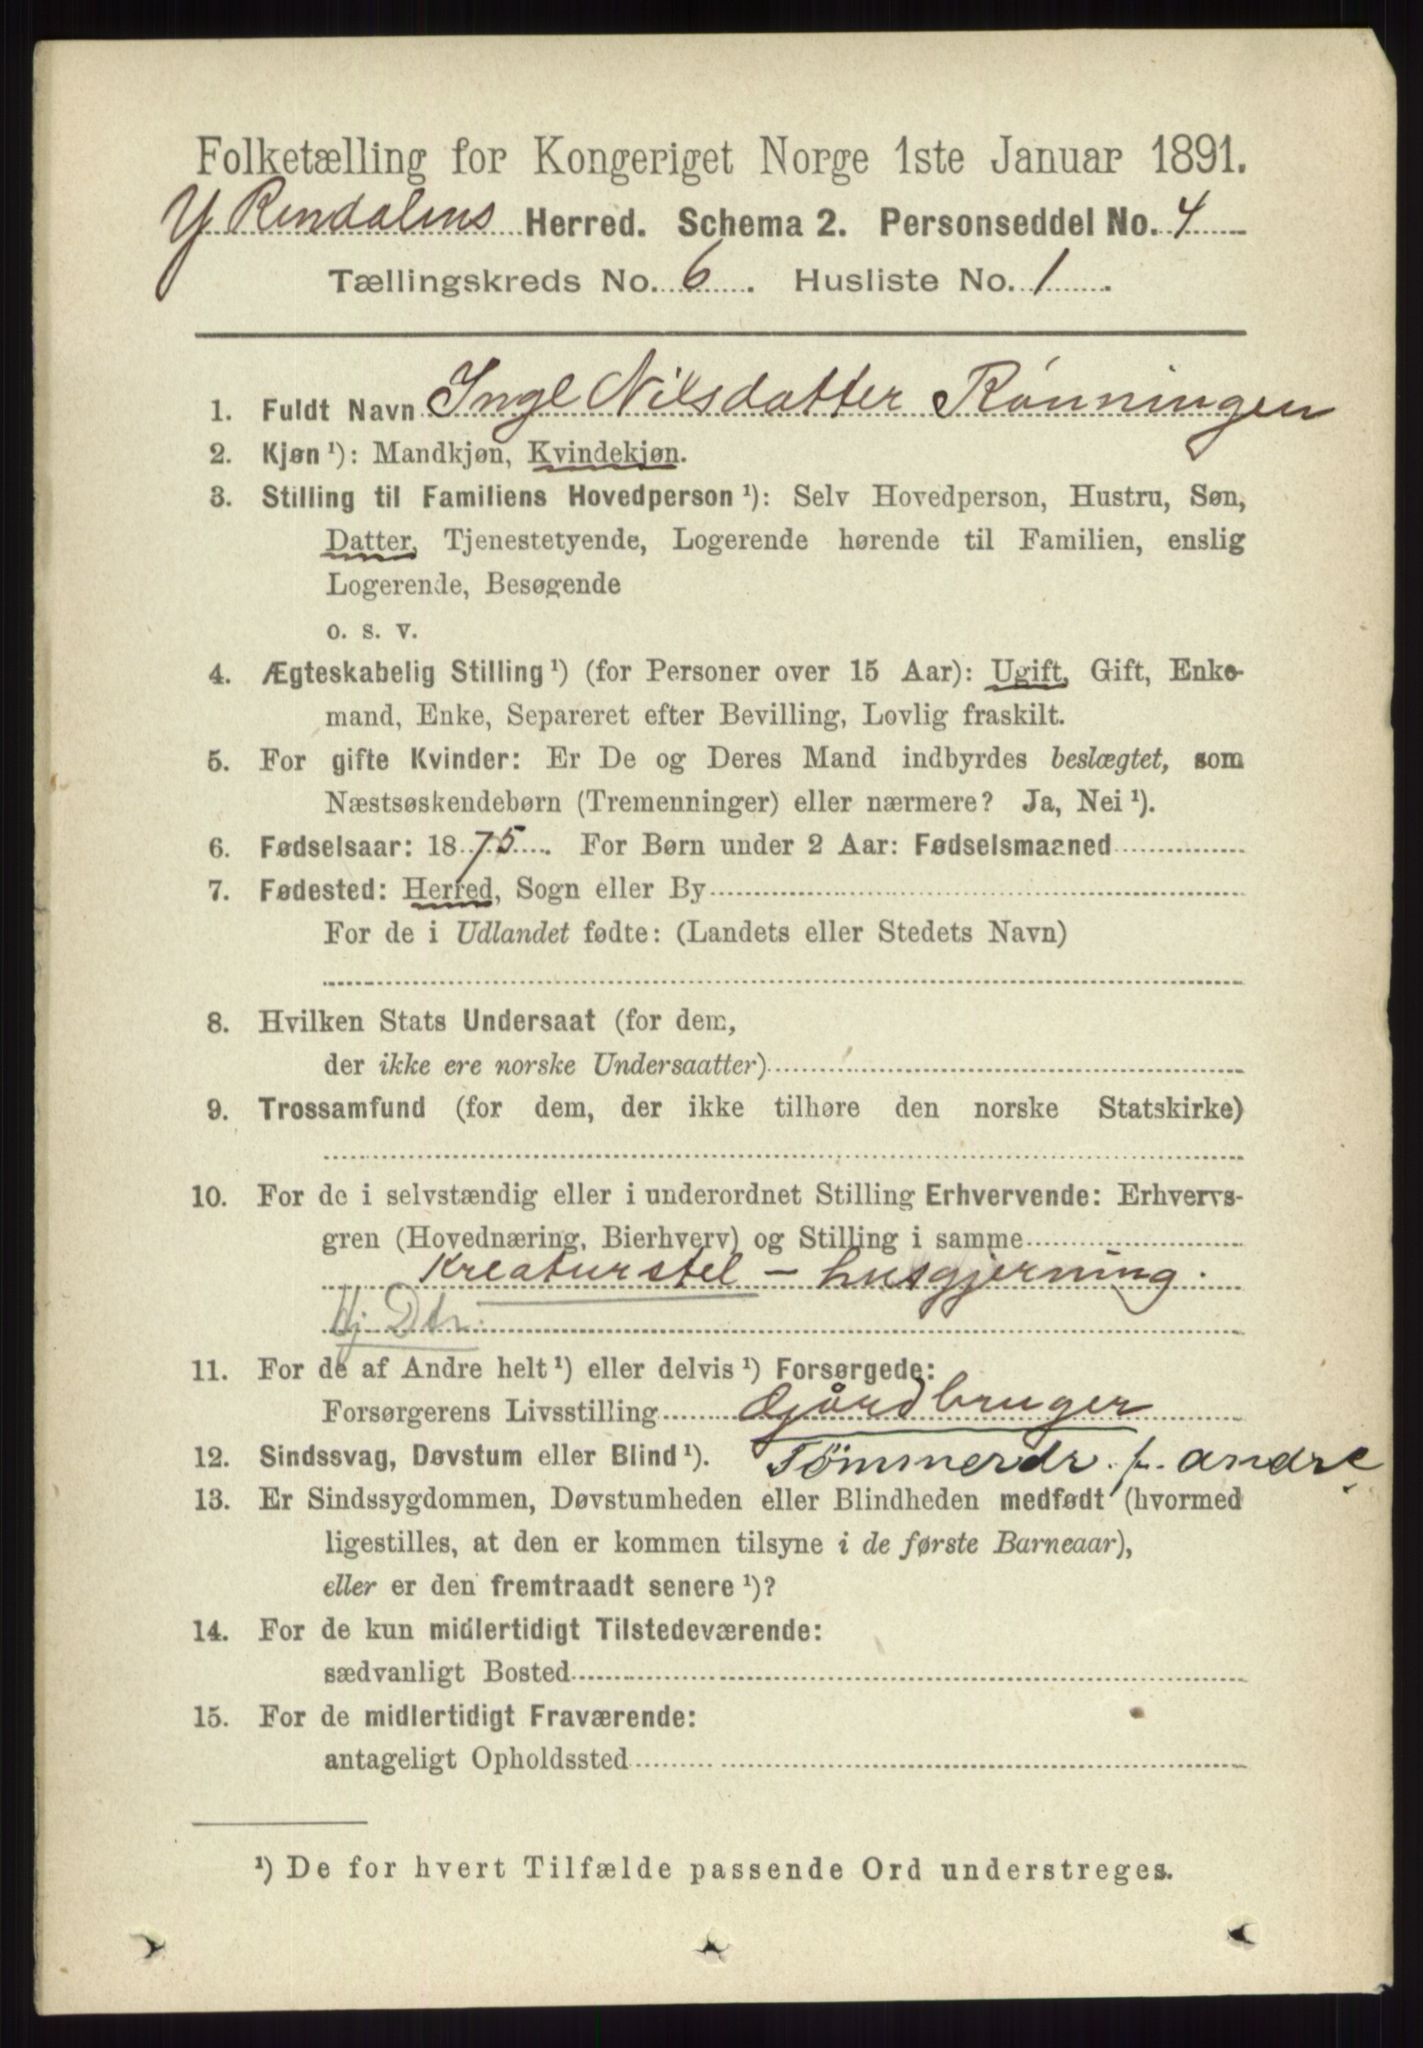 Folketælling for Kongeriget Norge 1ste Januar 1891.
Y Rendalens Herred. Schema 2. Personseddel No. 4
Tællingskreds No. 6. Husliste No. 1.
1. Fuldt Navn Inge Nilsdatter Rønningen
2. Kjøn ¹): Mandkjøn, Kvindekjøn.
3. Stilling til Familiens Hovedperson ¹): Selv Hovedperson, Hustru, Søn,
Datter, Tjenestetyende, Logerende hørende til Familien, enslig
Logerende, Besøgende
o. s. v.
4. Ægteskabelig Stilling ¹) (for Personer over 15 Aar): Ugift, Gift, Enke-
mand, Enke, Separeret efter Bevilling, Lovlig fraskilt.
5. For gifte Kvinder: Er De og Deres Mand indbyrdes beslægtet, som
Næstsøskendebørn (Tremenninger) eller nærmere? Ja, Nei ¹).
6. Fødselsaar: 1875. For Børn under 2 Aar: Fødselsmaaned
7. Fødested: Herred, Sogn eller By
For de i Udlandet fødte: (Landets eller Stedets Navn)
8. Hvilken Stats Undersaat (for dem,
der ikke ere norske Undersaatter)
9. Trossamfund (for dem, der ikke tilhøre den norske Statskirke)
10. For de i selvstændig eller i underordnet Stilling Erhvervende: Erhvervs-
gren (Hovednæring, Bierhverv) og Stilling i samme
Kreaturstel - husgjerning.
hj Dtr.
11. For de af Andre helt ¹) eller delvis ¹) Forsørgede:
Forsørgerens Livsstilling Gjårdbruger
12. Sindssvag, Døvstum eller Blind ¹). Tömmerdr. f. andre
13. Er Sindssygdommen, Døvstumheden eller Blindheden medfødt (hvormed
ligestilles, at den er kommen tilsyne i de første Barneaar),
eller er den fremtraadt senere ¹)?
14. For de kun midlertidigt Tilstedeværende:
sædvanligt Bosted
15. For de midlertidigt Fraværende:
antageligt Opholdssted
¹) De for hvert Tilfælde passende Ord understreges.